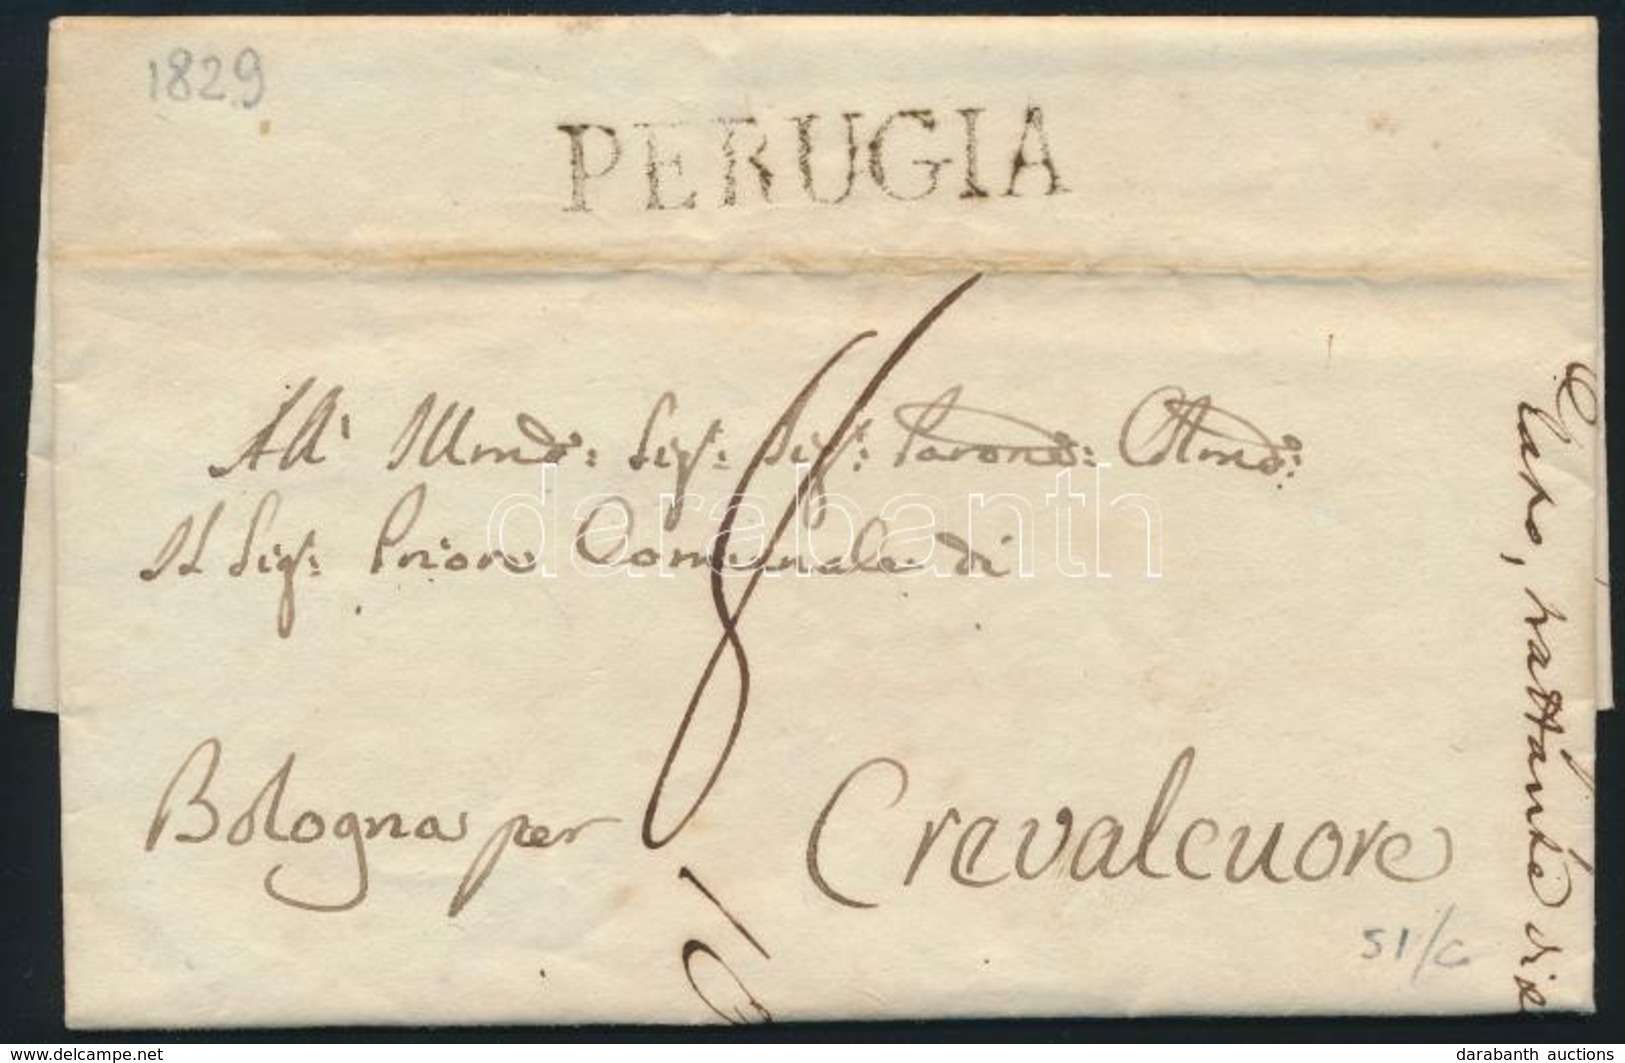 1829
PERUGIA
All' Illmo: Sig: Sig: Padrone: Colmo:
Il Sig: Priore Comunale di
Bologna per Crevalcuore
8
51/C
trattante di
darabanth
www.delcampe.net
darabanth auctions